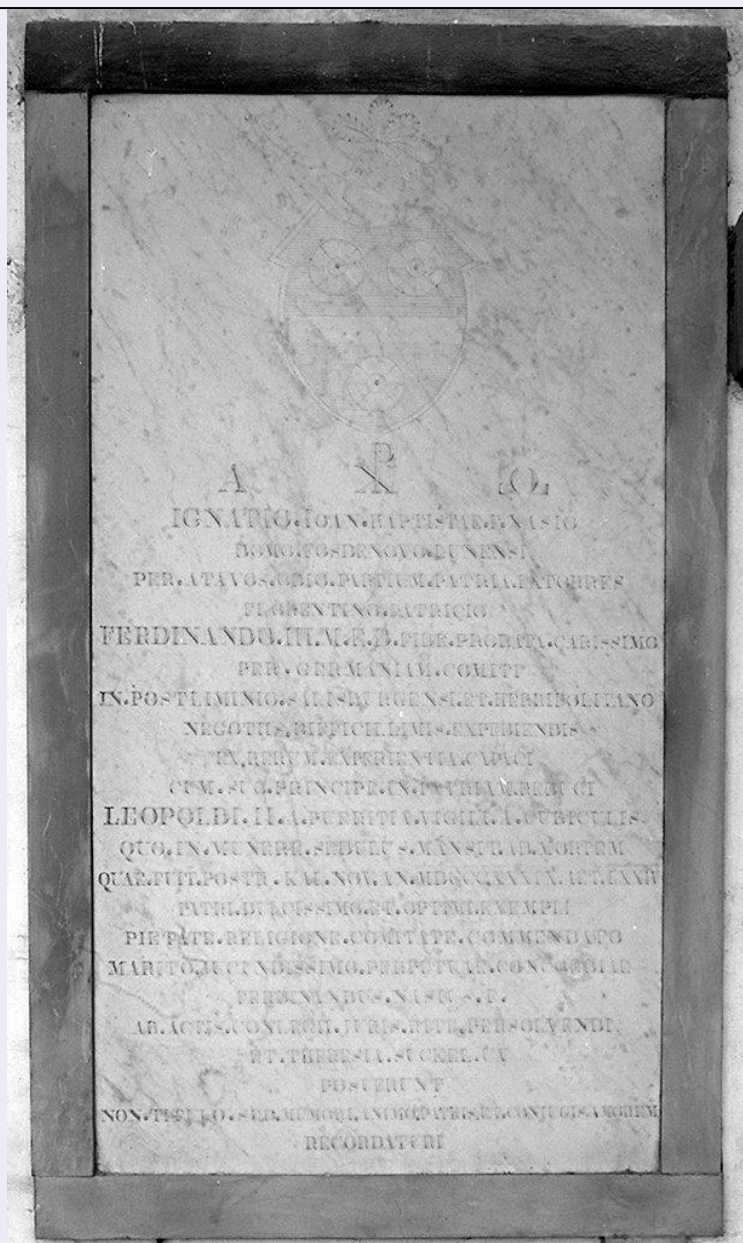 A ☧ Ω
IGNATIO.IOAN.BAPTISTAE.F.NASIO
DOMO.FOSDENOVO.LUNENSI
PER.ATAVOS.ODIO.PARTIUM.PATRIA.EXTORRES
FLORENTINO.PATRICIO
FERDINANDO.III.M.E.D.FIDE.PROBATA.CARISSIMO
PER.GERMANIAM.COMITI
IN.POSTLIMINIO.SALISBURGENSI.ET.HERBIPOLITANO
NEGOTIIS.DIFFICILLIMIS.EXPEDIENDIS
EX.RERUM.EXPERIENTIA.CAPACI
CUM.SUO.PRINCIPE.IN.PATRIAM.REDUCI
LEOPOLDI.II.A.PUERITIA.VIGILI.A.CUBICULIS
QUO.IN.MUNERE.SEDULUS.MANSIT.AD.MORTEM
QUAE.FUIT.POSTR.KAL.NOV.AN.MDCCCXXXIX.AET.LXXIV
PATRI.DULCISSIMO.ET.OPTIMI.EXEMPLI
PIETATE.RELIGIONE.COMITATE.COMMENDATO
MARITO.JUCUNDISSIMO.PERPETUAE.CONCORDIAE
FERDINANDUS.NASIUS.F.
AB.ACTIS.CONLEGII.JURIS.RITE.PERSOLVENDI
ET.THERESIA.SUCKEL.UX
POSUERUNT
NON.TITULO.SED.MEMORI.ANIMO.PATRIS.ET.CONJUGIS.AMOREM
RECORDATURI